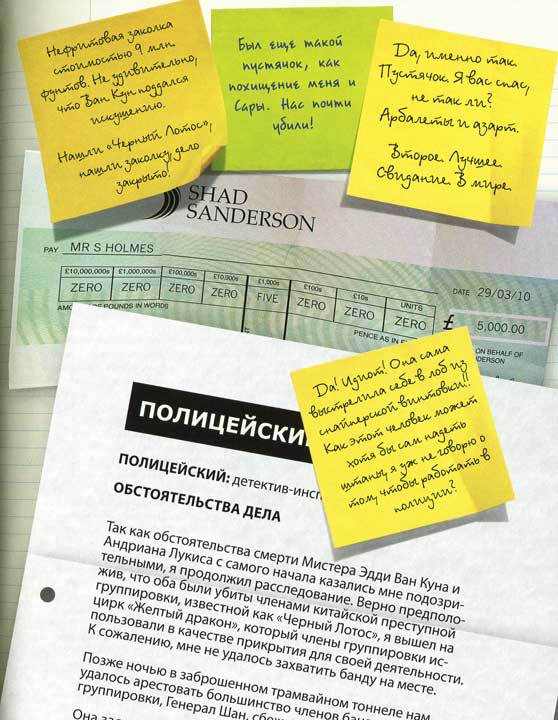 Нефритовая заколка
стоимостью 9 млн.
фунтов. Не удивительно,
что Ван Кун поддался
искушению.
Нашли «Черный Лотос»,
нашли заколку, дело
закрыто!
Был еще такой
пустячок, как
похищение меня и
Сары. Нас почти
убили!
Да, именно так.
Пустячок. Я вас спас,
не так ли?
Арбалеты и азарт.
Второе Лучшее
Свидание В мире.
SHAD
SANDERSON
PAY MR S HOLMES
DATE 29/03/10
£10,000,000s £1,000,000s £100,000s £10,000s £1,000s £100s £10s UNITS
ZERO ZERO ZERO ZERO FIVE ZERO ZERO ZERO
£ 5,000.00
POUNDS IN WORDS
PENCE AS IN
ON BEHALF OF
Да! Идиот! Она сама
выстрелила себе в лоб из
снайперской винтовки!!
Как этот человек может
хотя бы сам надеть
штаны, я уж не говорю о
том, чтобы работать в
полиции?
ПОЛИЦЕЙСКИ
ПОЛИЦЕЙСКИЙ: детектив-инсп
ОБСТОЯТЕЛЬСТВА ДЕЛА
Так как обстоятельства смерти Мистера Эдди Ван Куна и
Андриана Лукиса с самого начала казались мне подозри-
тельными, я продолжил расследование. Верно предполо-
жив, что оба были убиты членами китайской преступной
группировки, известной как «Черный Лотос», я вышел на
цирк «Желтый дракон», который члены группировки ис-
пользовали в качестве прикрытия для своей деятельности.
К сожалению, мне не удалось захватить банду на месте.
Позже ночью в заброшенном трамвайном тоннеле нам
удалось арестовать большинство членов бан
группировки, Генерал Шан, сбеж
Она зас